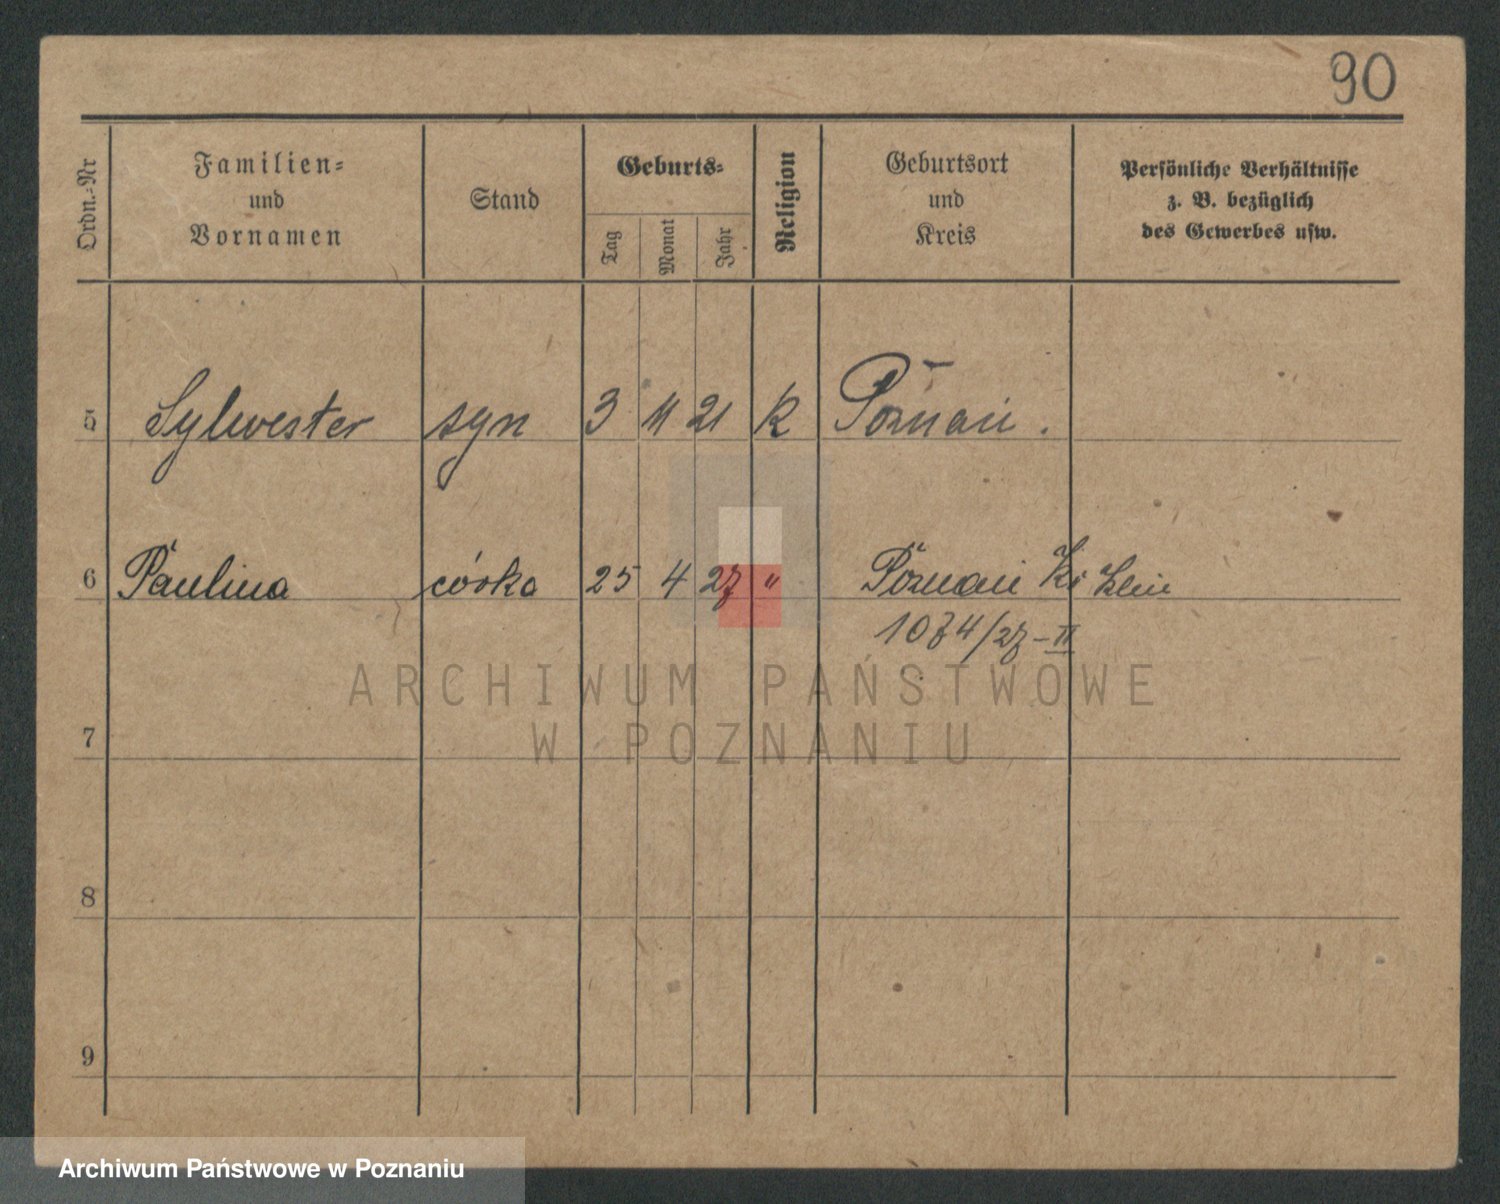 90
Ordn.-Nr
Familien=
und
Vornamen
Stand
Geburts=
Tag
Monat
Jahr
Religion
Geburtsort
und
Kreis
Persönliche Verhältnisse
z. B. bezüglich
des Gewerbes usw.
5 Sylwester syn 3 11 21 K Poznań.
6 Paulina córka 25 4 27 " Poznań
1074/27-II
ARCHIWUM PAŃSTWOWE
W POZNANIU
7
8
9
Archiwum Państwowe w Poznaniu